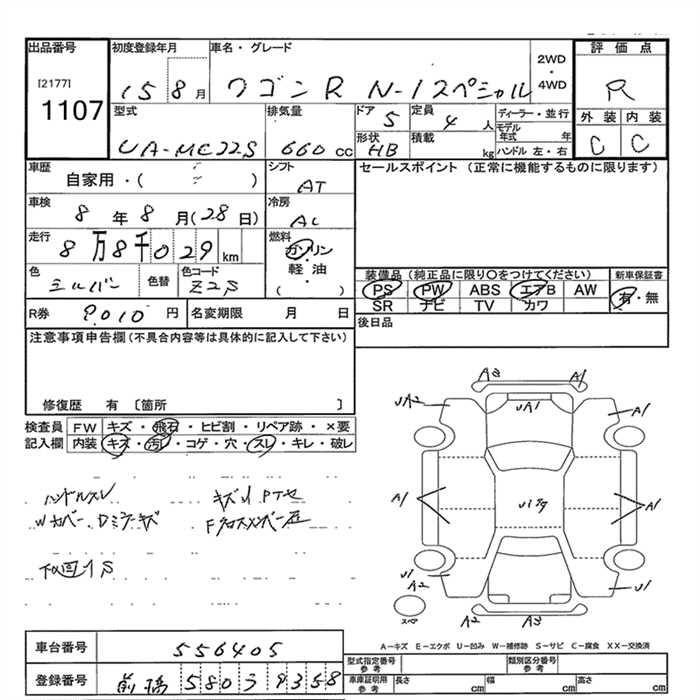 出品番号 初度登録年月 車名・グレード 2WD ・ 4WD 評価点
[2177] 1107 15 8月 ワゴンR N-1スペシャル R
型式 排気量 ドア 5 定員 4人 ディーラー・並行 外装 内装
UA-MC22S 660cc 形状 HB 積載 kg モデル年式 年 ハンドル 左・右 C C
車歴 自家用・( ) シフト AT セールスポイント (正常に機能するものに限ります)
車検 8年8月(28日) 冷房 AC
走行 8万8千029km 燃料 ガソリン 軽・油 ( ・ )
色 シルバー 色替 色コード Z2S 装備品 (純正品に限り○をつけてください) 新車保証書
PS PW ABS エアB AW 有・無
SR ナビ TV カワ
R券 9010円 名変期限 月 日 後日品
注意事項申告欄 (不具合内容等は具体的に記入して下さい)
修復歴 有 〔箇所 〕
検査員 FW キズ・飛石・ヒビ割・リペア跡・×要
記入欄 内装 キズ・汚レ・コゲ・穴・スレ・キレ・破レ
ハンドルスレ
Wカバー、Dミラーキズ
下回りS
A3 A1
UA2 UA1 A1
A1 A1
U1 A2 U1
スペア A2 A3
A-キズ E-エクボ U-凹み W-補修跡 S-サビ C-腐食 XX-交換済
車台番号 556405
登録番号 前橋 580 ヲ 9358
型式指定番号 参考 類別区分番号 参考
車庫証明用 参考 長さ cm 幅 cm 高さ cm